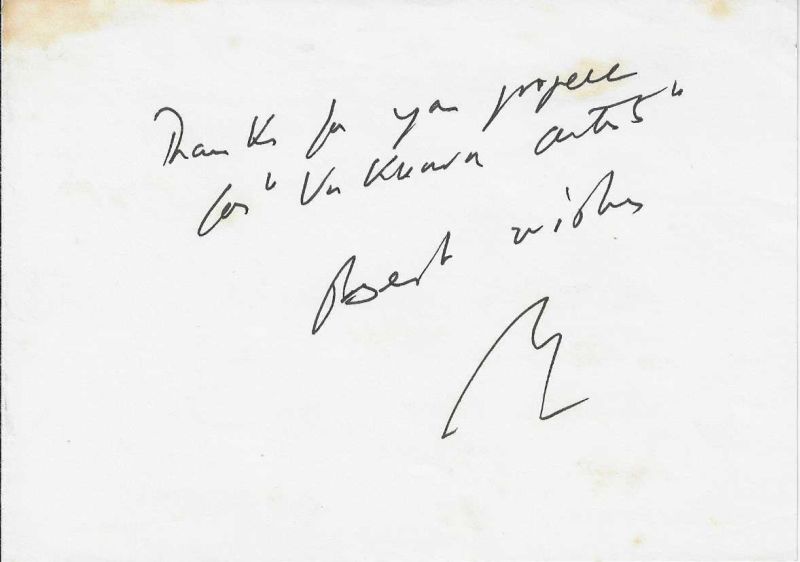 Thanks for your propose
for "Unknown artist"
Best wishes